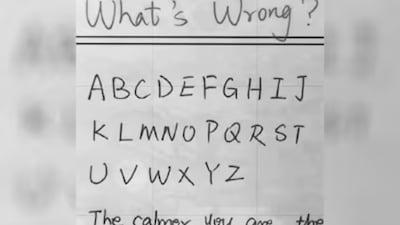 What's Wrong?
A B C D E F G H I J
K L M N O P Q R S T
U V W X Y Z
The calmer you are, the